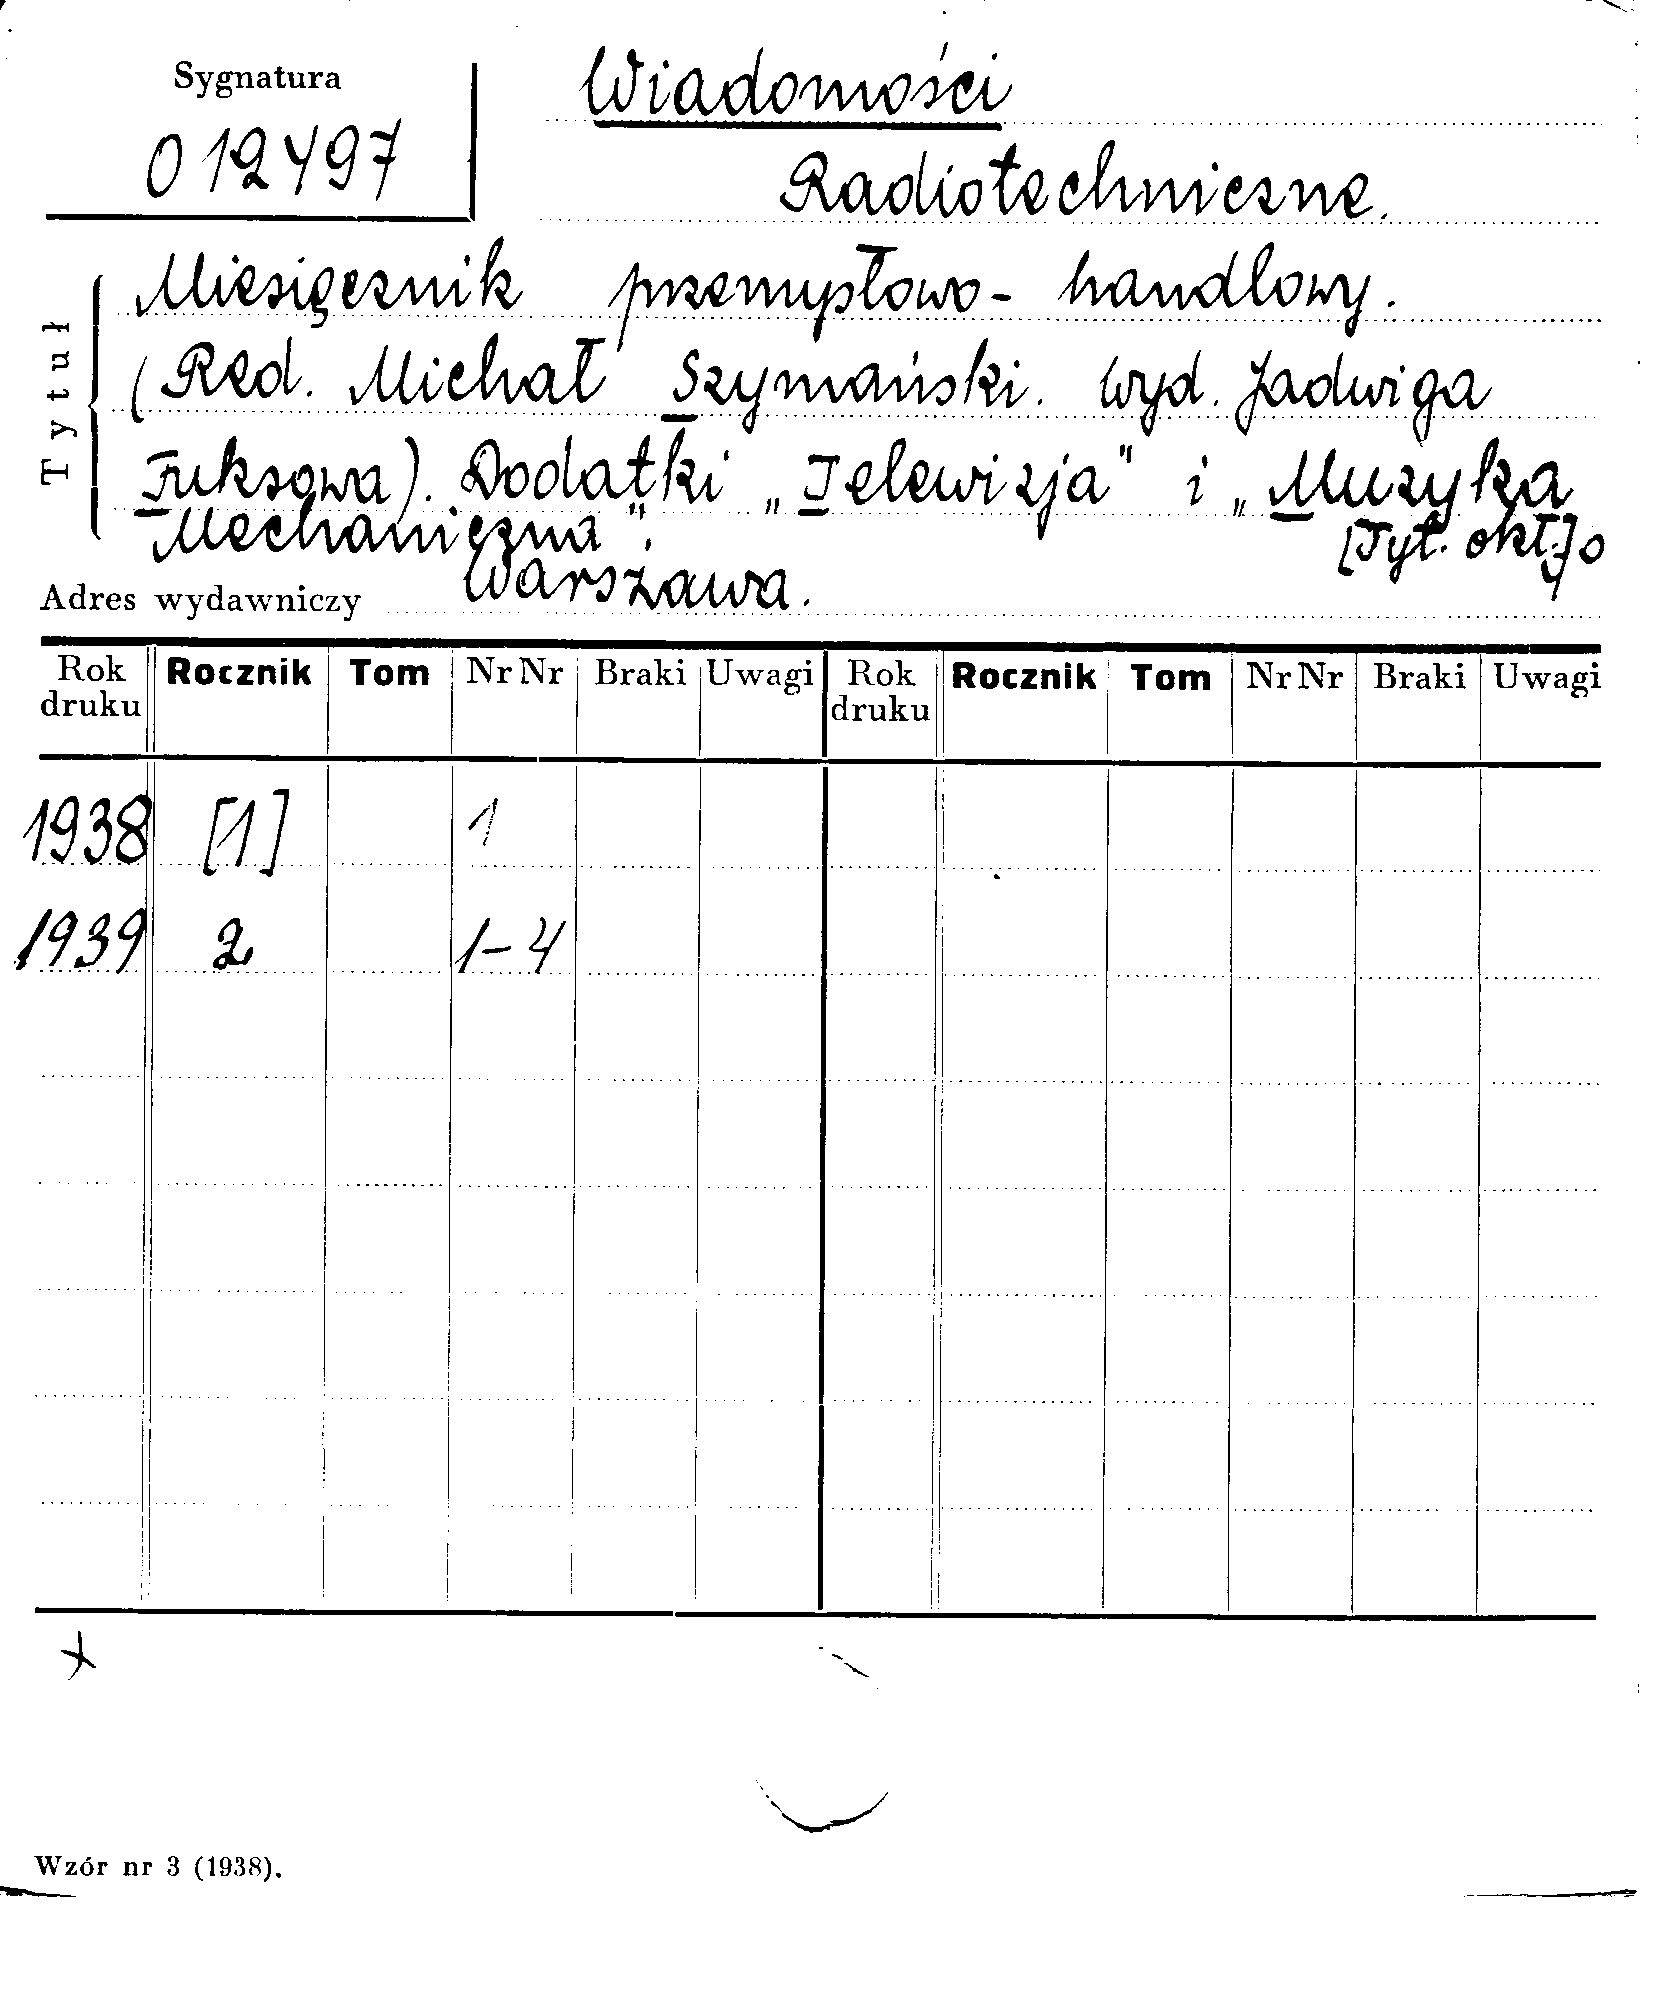 Sygnatura
012497
Wiadomości
Radiotechniczne.
Tytuł
Miesięcznik przemysłowo-handlowy.
(Red. Michał Szymański. Wyd. Jadwiga
Fuksowa). Dodatki „Telewizja" i „Muzyka
Mechaniczna".
[Tyt. okł.]
Adres wydawniczy Warszawa.
Rok druku Rocznik Tom Nr Nr Braki Uwagi Rok druku Rocznik Tom Nr Nr Braki Uwagi
1938 [1] 1
1939 2 1-4
Wzór nr 3 (1938).